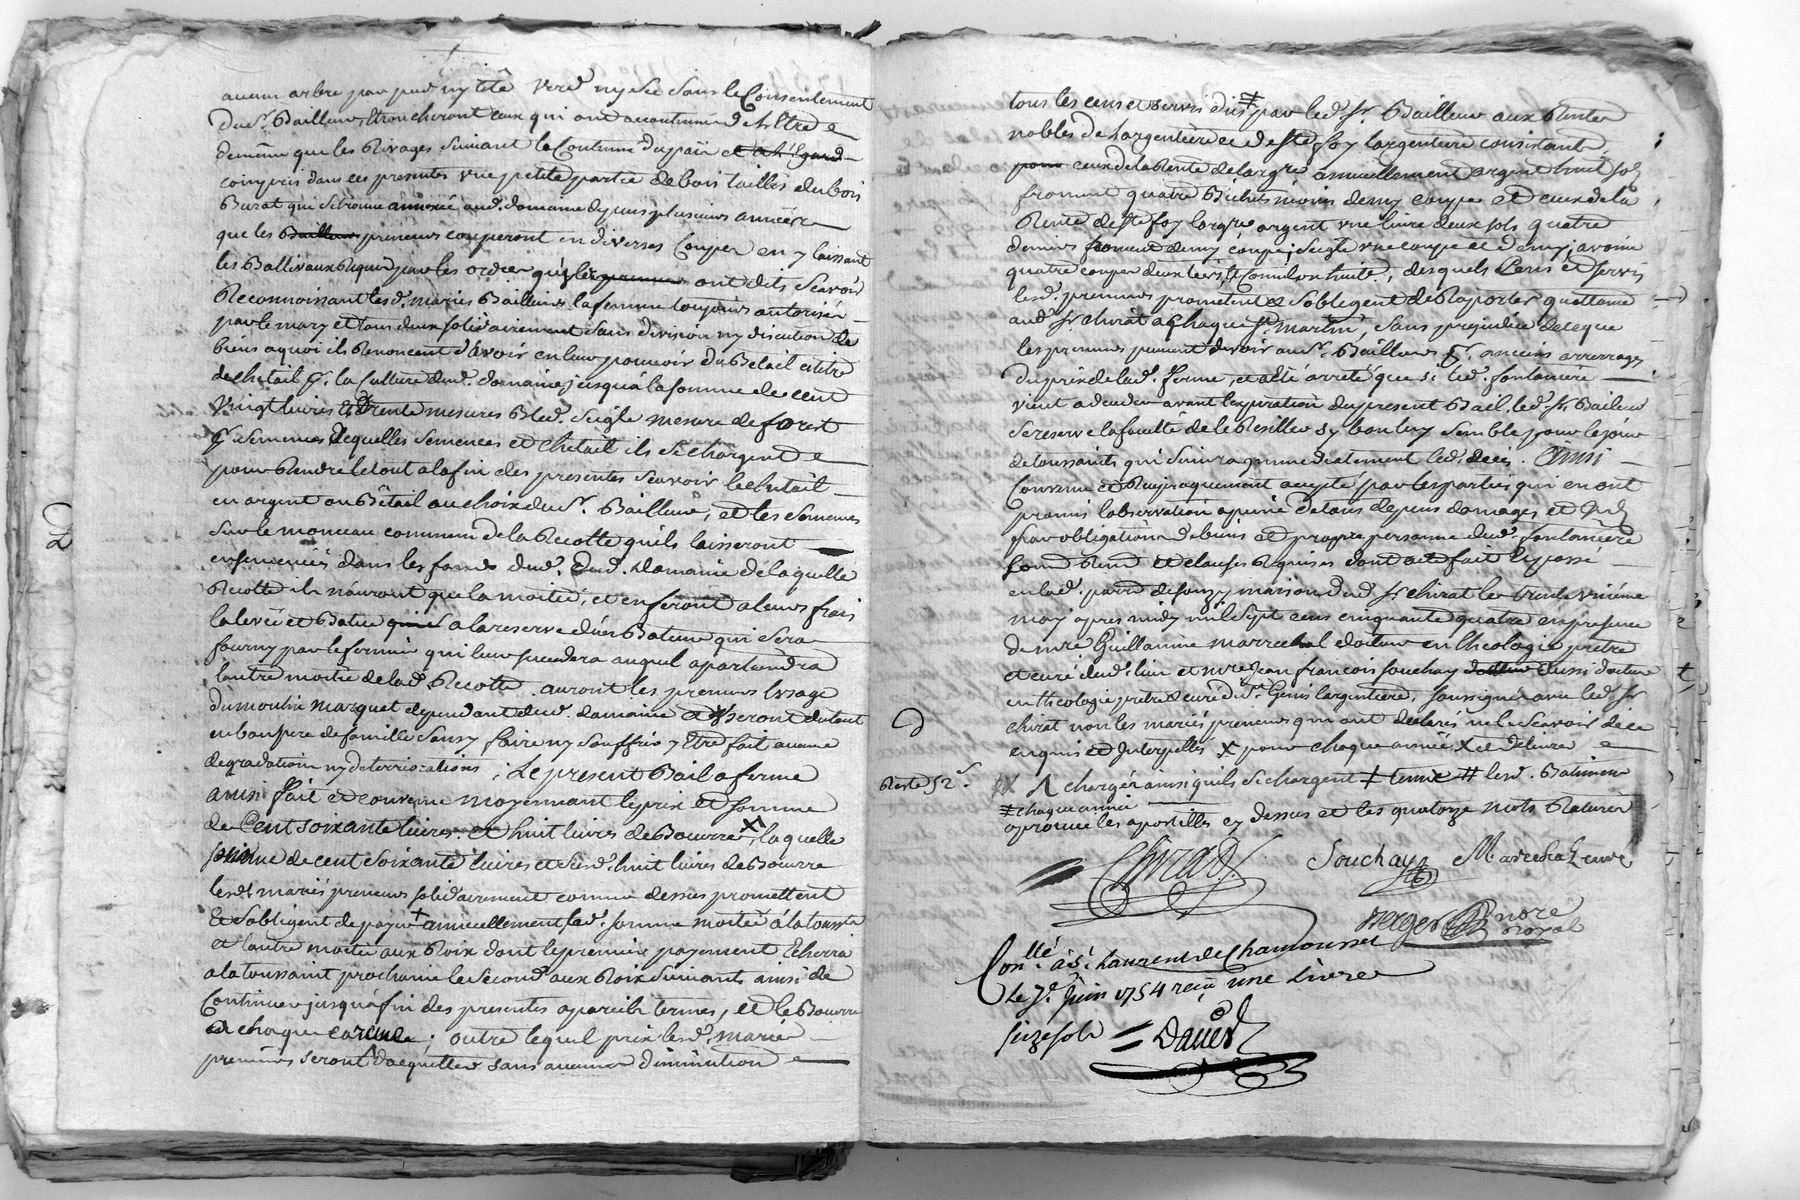 aucun arbre par pied ny tête verd ny sec sans le Consentement
dud. Sr. Bailleur, troncheront ceux qui ont accoutumé d'Estre
de même que les Rivages Suivant la Coutume du païs et a l'Egard
compris dans ces presentes une petite partie de bois taillis du bois
Burat qui se trouve annexée aud. domaine depuis plusieurs années
que les Bailleur preneurs couperont en diverses Coupes en y laissant
les Ballivaux Requis par les ordres
ont dits Scavoir
Reconnoissant lesd. mariés Bailleurs la femme toujours autorisée
par le mary et tous deux solidairement sans division ny discution de
biens a quoi ils Renoncent d'avoir en leur pouvoir du Betail a titre
de chetail pr. la Culture dud. domaine jusqu'a la somme de cent
vingt livres et trente mesures Bled Seigle mesure de forest
pr. semences desquelles semences et Chetail ils se chargent
pour Rendre le tout a la fin des presentes scavoir le chetail
en argent ou Bêtail au choix dud. Sr. Bailleur, et les semences
sur le monceau commun de la Recolte qu'ils laisseront
ensemencés dans les fonds dud. domaine de laquelle
Recolte ils n'auront que la moitié, et en feront a leurs frais
la levée et Batue a la reserve d'un Bateur qui sera
fourny par le fermier qui leur succedera auquel apartiendra
l'autre moitié de lad. Recolte. auront les preneurs l'usage
du moulin Marquet dependant dud. domaine et useront du tout
en bon pere de famille sans y faire ny souffrir y Etre fait aucune
degradation ny deterriorations ; Le present Bail a ferme
ainsi fait et convenu moyennant le prix et somme
de Cent soixante livres et huit livres de Beurre X, laquelle
somme de cent soixante livres et lesd. huit livres de Beurre
lesdt mariés preneurs solidairement comme dessus promettent
Et s'obligent de payer + annuellement lad. somme moitié a la toussts
et l'autre moitié aux Roix dont le premier payement Echerra
a la toussaint prochaine le second aux Roix suivants ainsi de
Continuer jusqu'a fin des presentes a pareils termes, et le Beurre
a chaque careme ; outre lequel prix lesd. mariés
preneurs seront d'acquitter sans aucune diminution
tous les cens et servis dus # par led. Sr Bailleur aux Rentes
nobles de Largentiere et de Ste foy Largentiere consistants,
pour ceux de la Rente de Largre annuellement argent huit sols
froment quatre Bichets moins demy coupe et ceux de la
Rente de Ste foy Largre argent une livre deux sols quatre
deniers froment demy coupe, seigle une coupe et demy, avoine
quatre coupes deux tiers, desquels Cens et servis
lesd. preneurs promettent et s'obligent de Raporter quittance
aud. Sr Chirat a Chaque St. Martin, sans prejudice de ce que
les preneurs peuvent devoir aud. Sr. Bailleur pr. anciens arrerages
du prix de lad. ferme, et a eté arreté que si led. fontaniere
vient a deceder avant l'expiration du present Bail, led. Sr Bailleur
se reserve la faculté de le Resilier sy bon luy semble pour le jour
de toussaints qui suivra immediatement led. deces. Ainsi
Convenu et Reciproquement accepté par les parties qui en ont
promis l'observation a peine de tous depens domages et
par obligation de biens et propre personne dud. fontaniere
et clauses Requises dont acte fait le passé
en lad. parr. de souzy maison dud. Sr Chirat le trente uniéme
may apres midy mil sept cens cinquante quatre en presence
de mre Guillaume Marrechal docteur en theologie pretre
et curé dud. lieu et mre Jean françois Souchay docteur aussi docteur
en theologie pretre et curé de St. Genis Largentiere, soussignés avec led. Sr
Chirat non les mariés preneurs qui ont declarés ne le scavoir de ce
enquis et Interpellés X pour chaque année X et delivré
Reste 52 s.
A chargér ainsi qu'ils se chargent lesd. Batimens
# chaque année
aprouvé les apostilles cy dessus et les quatorze mots Raturés
Chirat
Souchay
Marechal curé
Verger nore
Royal
Conllé à St. Laurent de Chamousset
Le 7e. Juin 1754 reçu une Livre
seize sols
Daued